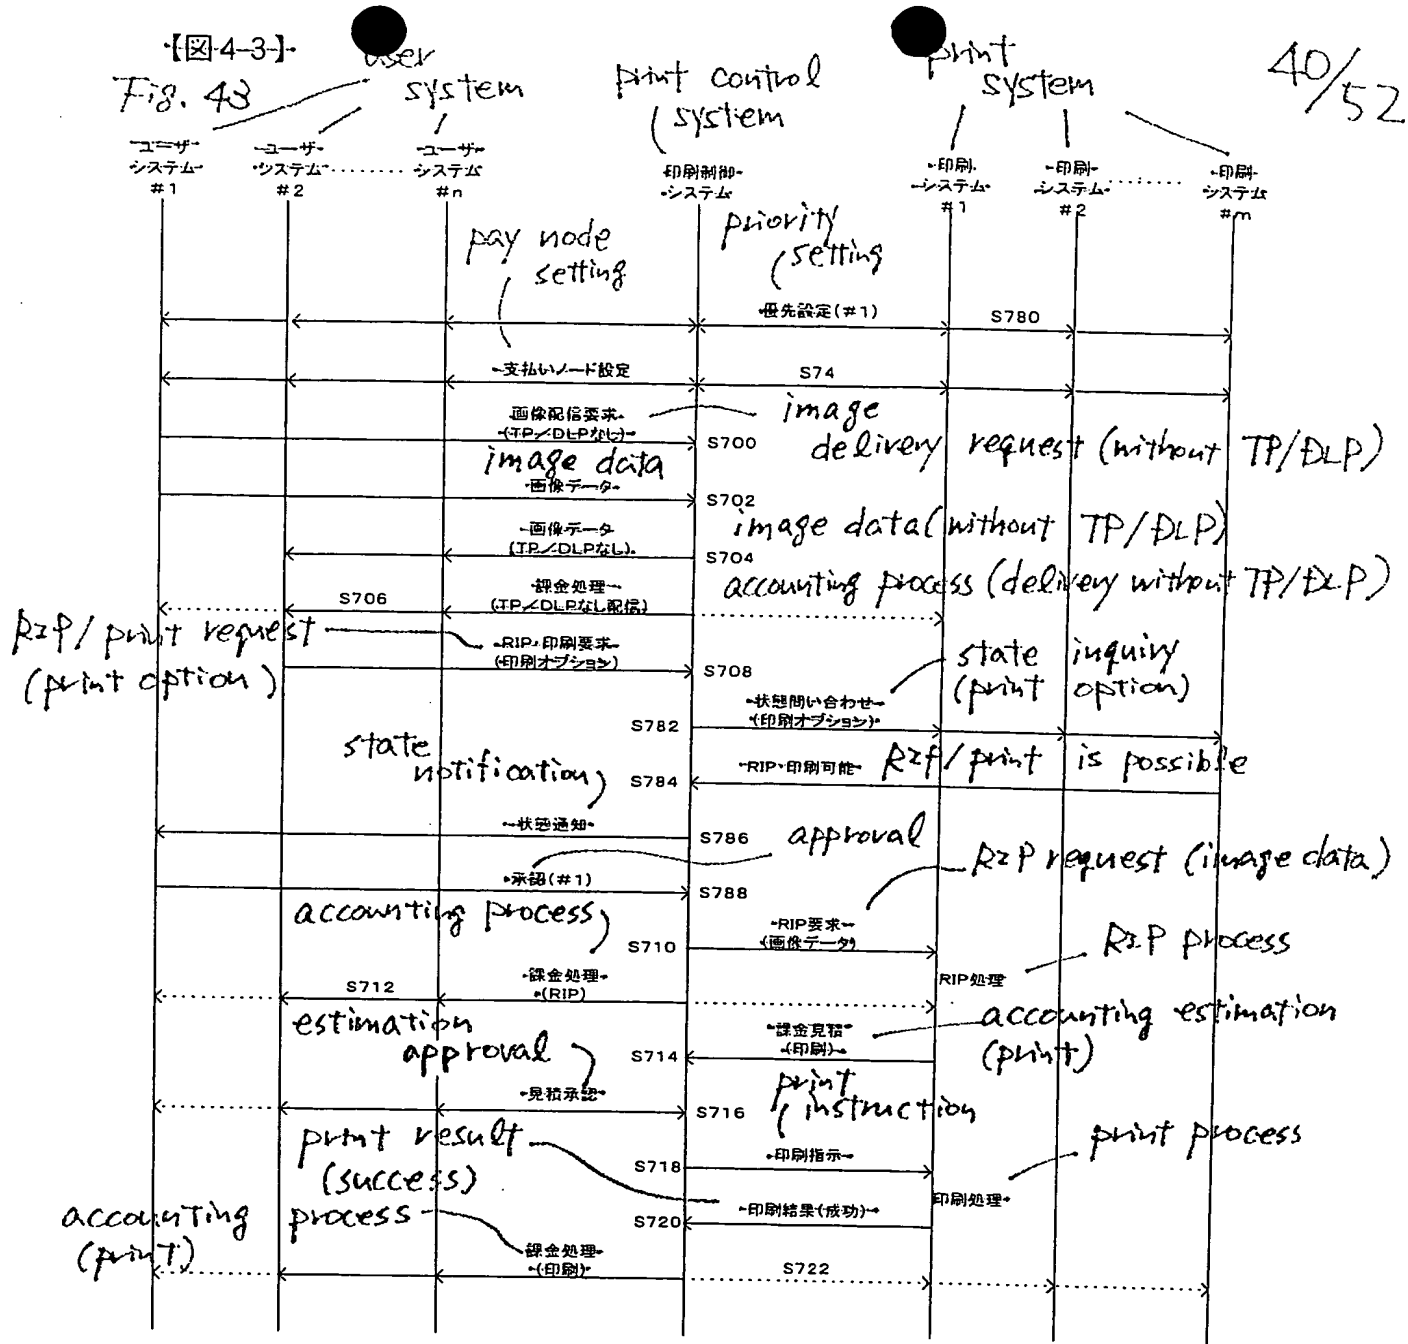 【図4-3】
Fig. 43
user
system
print control
system
print
system
40/52
ユーザ
システム
#1
ユーザ
システム
#2
ユーザ
システム
#n
印刷制御
システム
印刷
システム
#1
印刷
システム
#2
印刷
システム
#m
pay node
setting
priority
setting
優先設定(#1)
S780
支払いノード設定
S74
画像配信要求
(TP/DLPなし)
S700
image
delivery request (without TP/DLP)
image data
画像データ
S702
画像データ
(TP/DLPなし)
S704
image data (without TP/DLP)
課金処理
(TP/DLPなし配信)
S706
accounting process (delivery without TP/DLP)
RIP/print request
(print option)
RIP・印刷要求
(印刷オプション)
S708
state inquiry
(print option)
S782
状態問い合わせ
(印刷オプション)
state
notification
S784
RIP・印刷可能
RIP/print is possible
状態通知
S786
approval
承認(#1)
S788
RIP request (image data)
accounting process
S710
RIP要求
(画像データ)
RIP process
RIP処理
S712
課金処理
(RIP)
estimation
approval
S714
課金見積
(印刷)
accounting estimation
(print)
見積承認
S716
print
instruction
print result
(success)
S718
印刷指示
print process
印刷処理
S720
印刷結果(成功)
accounting process
(print)
課金処理
(印刷)
S722